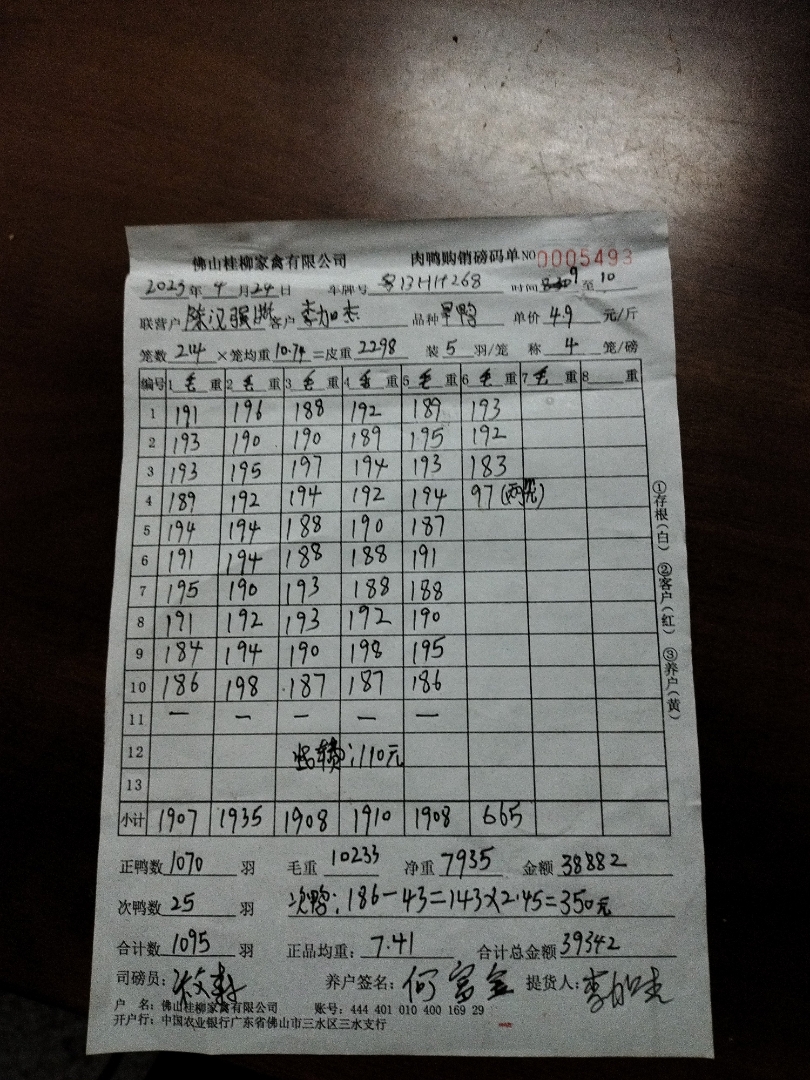 佛山桂柳家禽有限公司 肉鸭购销磅码单 NO 0005493
2023年 4月24日 车牌号 粤BHH268 时间 9 至 10
联营户 客户 李加杰 品种 旱鸭 单价 4.9 元/斤
笼数 214 ×笼均重 10.74 =皮重 2298 装 5 羽/笼 称 4 笼/磅
编号 1 毛 重 2 毛 重 3 毛 重 4 毛 重 5 毛 重 6 毛 重 7 毛 重 8 重
1 191 196 188 192 189 193
2 193 190 190 189 195 192
3 193 195 197 194 193 183
4 189 192 194 192 194 97 (两笼)
5 194 194 188 190 187
6 191 194 188 188 191
7 195 190 193 188 188
8 191 192 193 192 190
9 184 194 190 198 195
10 186 198 187 187 186
11 — — — — —
12 费:110元
13
小计 1907 1935 1908 1910 1908 665
①存根(白) ②客户(红) ③养户(黄)
正鸭数 1070 羽 毛重 10233 净重 7935 金额 38882
次鸭数 25 羽 次鸭:186-43=143×2.45=350元
合计数 1095 羽 正品均重: 7.41 合计总金额 39342
司磅员: 养户签名: 何富金 提货人: 李加杰
户 名: 佛山桂柳家禽有限公司 账号: 444 401 010 400 169 29
开户行: 中国农业银行广东省佛山市三水区三水支行